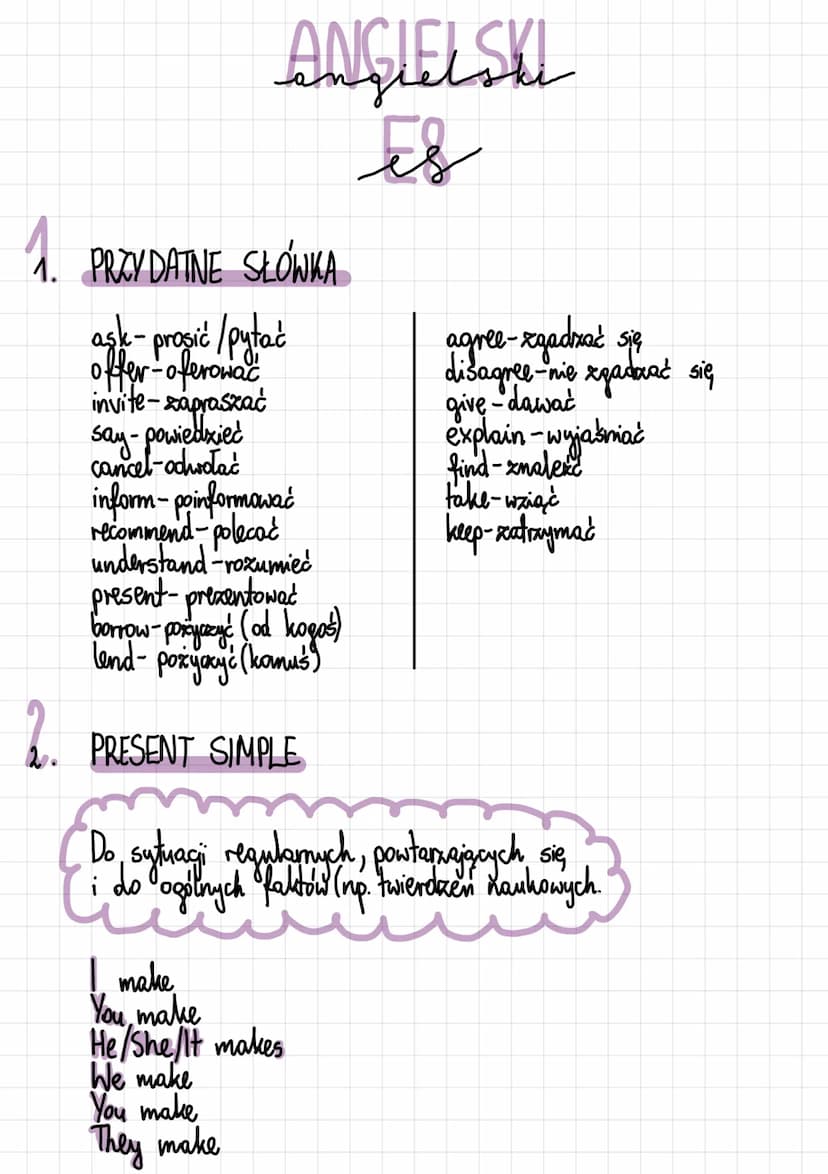 ANGIELSKI
angielski
E8
e8
1. PRZYDATNE SŁÓWKA
ask - prosić / pytać
offer - oferować
invite - zapraszać
say - powiedzieć
cancel - odwołać
inform - poinformować
recommend - polecać
understand - rozumieć
present - prezentować
borrow - pożyczyć (od kogoś)
lend - pożyczyć (komuś)
agree - zgadzać się
disagree - nie zgadzać się
give - dawać
explain - wyjaśniać
find - znaleźć
take - wziąć
keep - zatrzymać
2. PRESENT SIMPLE
Do sytuacji regularnych, powtarzających się
i do ogólnych faktów (np. twierdzeń naukowych.
I make
You make
He/She/It makes
We make
You make
They make